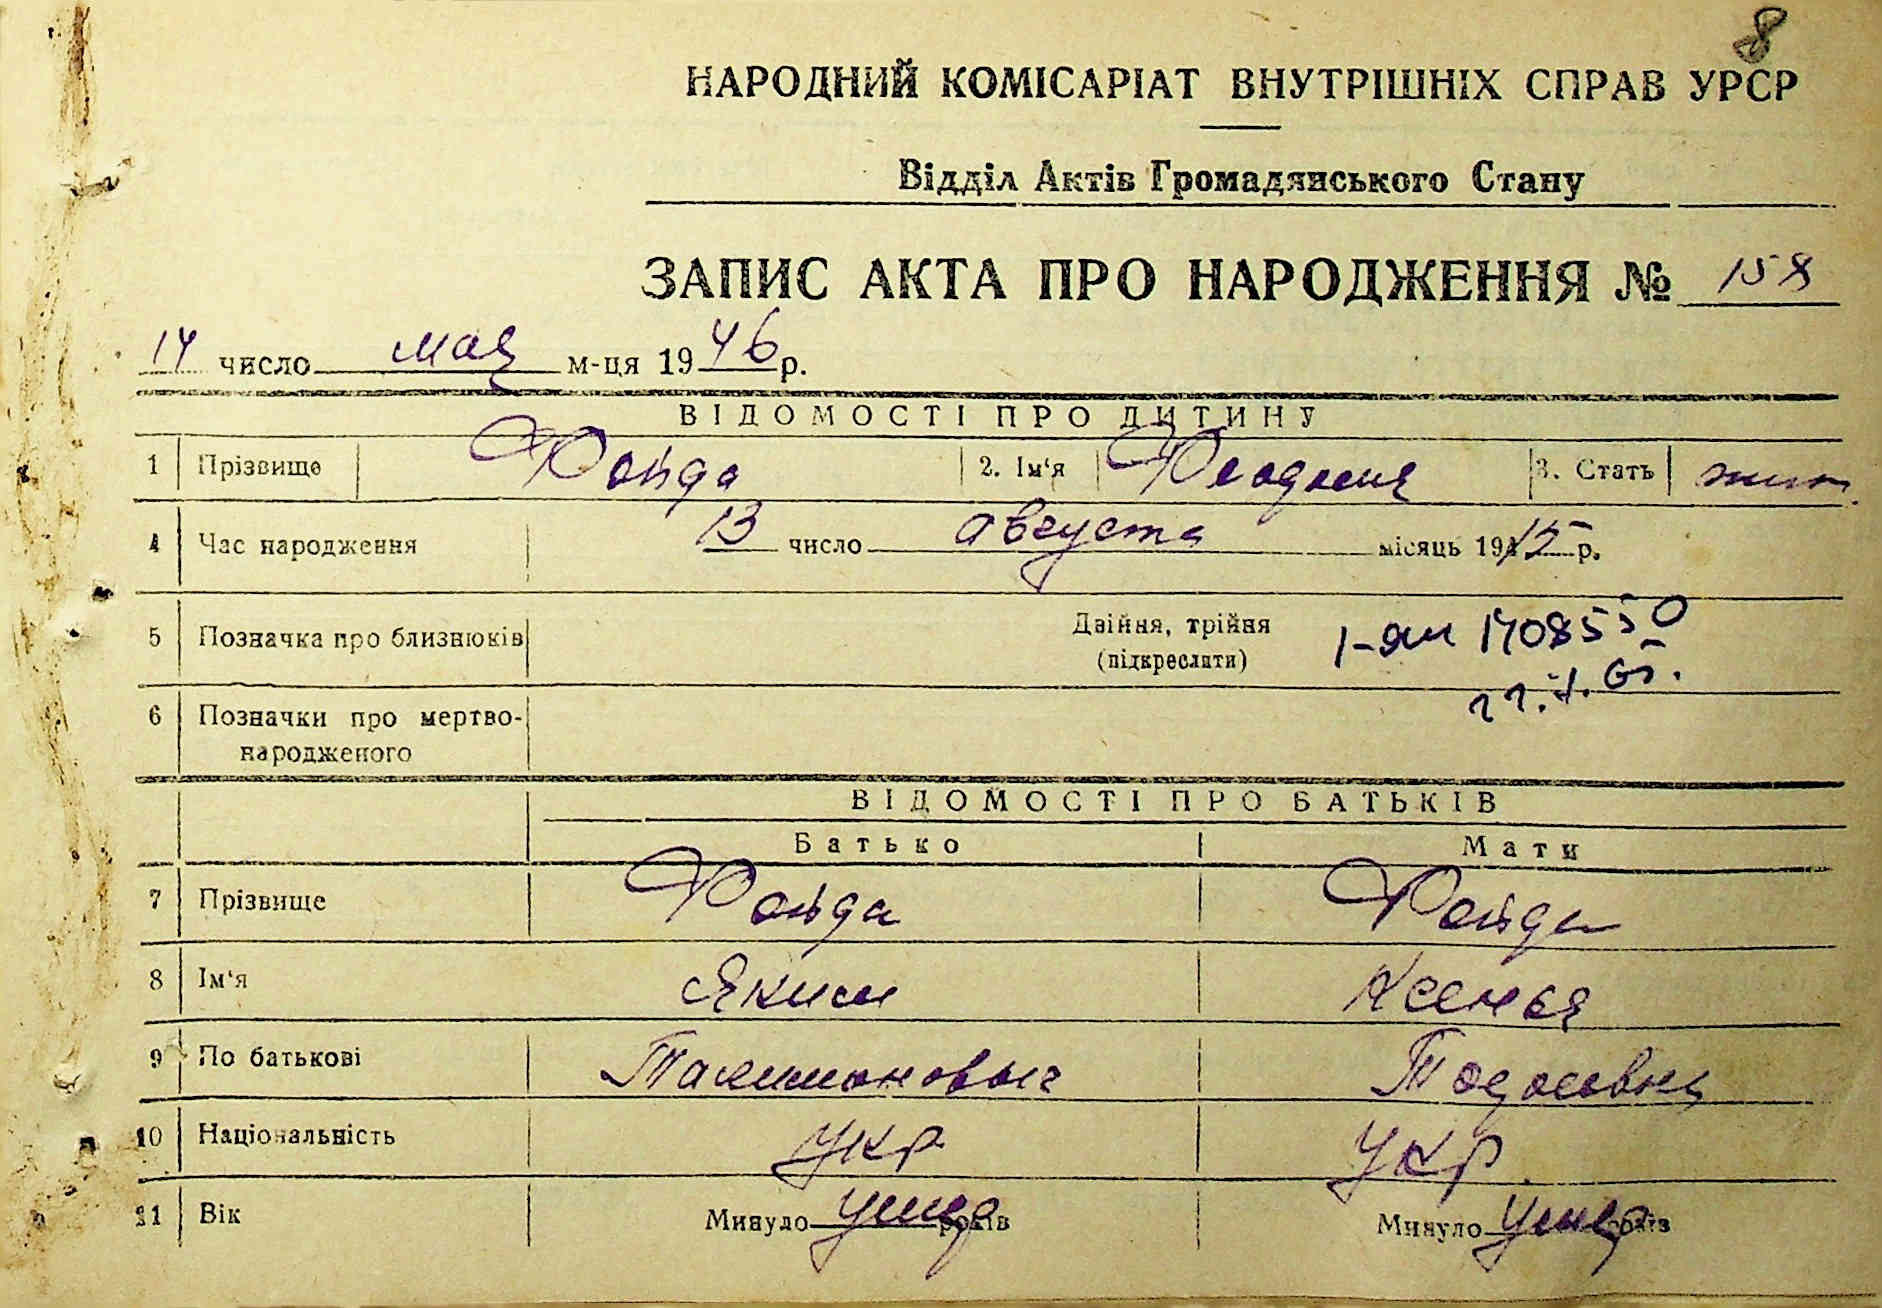 8
НАРОДНИЙ КОМІСАРІАТ ВНУТРІШНІХ СПРАВ УРСР
Відділ Актів Громадянського Стану
ЗАПИС АКТА ПРО НАРОДЖЕННЯ № 158
14 число мая м-ця 1946 р.
ВІДОМОСТІ ПРО ДИТИНУ
1 Прізвище Фойда 2. Ім'я Феодосия 3. Стать жин.
4 Час народження 13 число августа місяць 1915 р.
5 Позначка про близнюків Двійня, трійня
(підкреслити)
I-ЯМ 1408550
6 Позначки про мертво-
народженого
ВІДОМОСТІ ПРО БАТЬКІВ
Батько Мати
7 Прізвище Фойда Фойда
8 Ім'я Яким Ксенья
9 По батькові Талимоновыч Тодосьвна
10 Національність укр укр
11 Вік Минуло умер років Минуло умер років